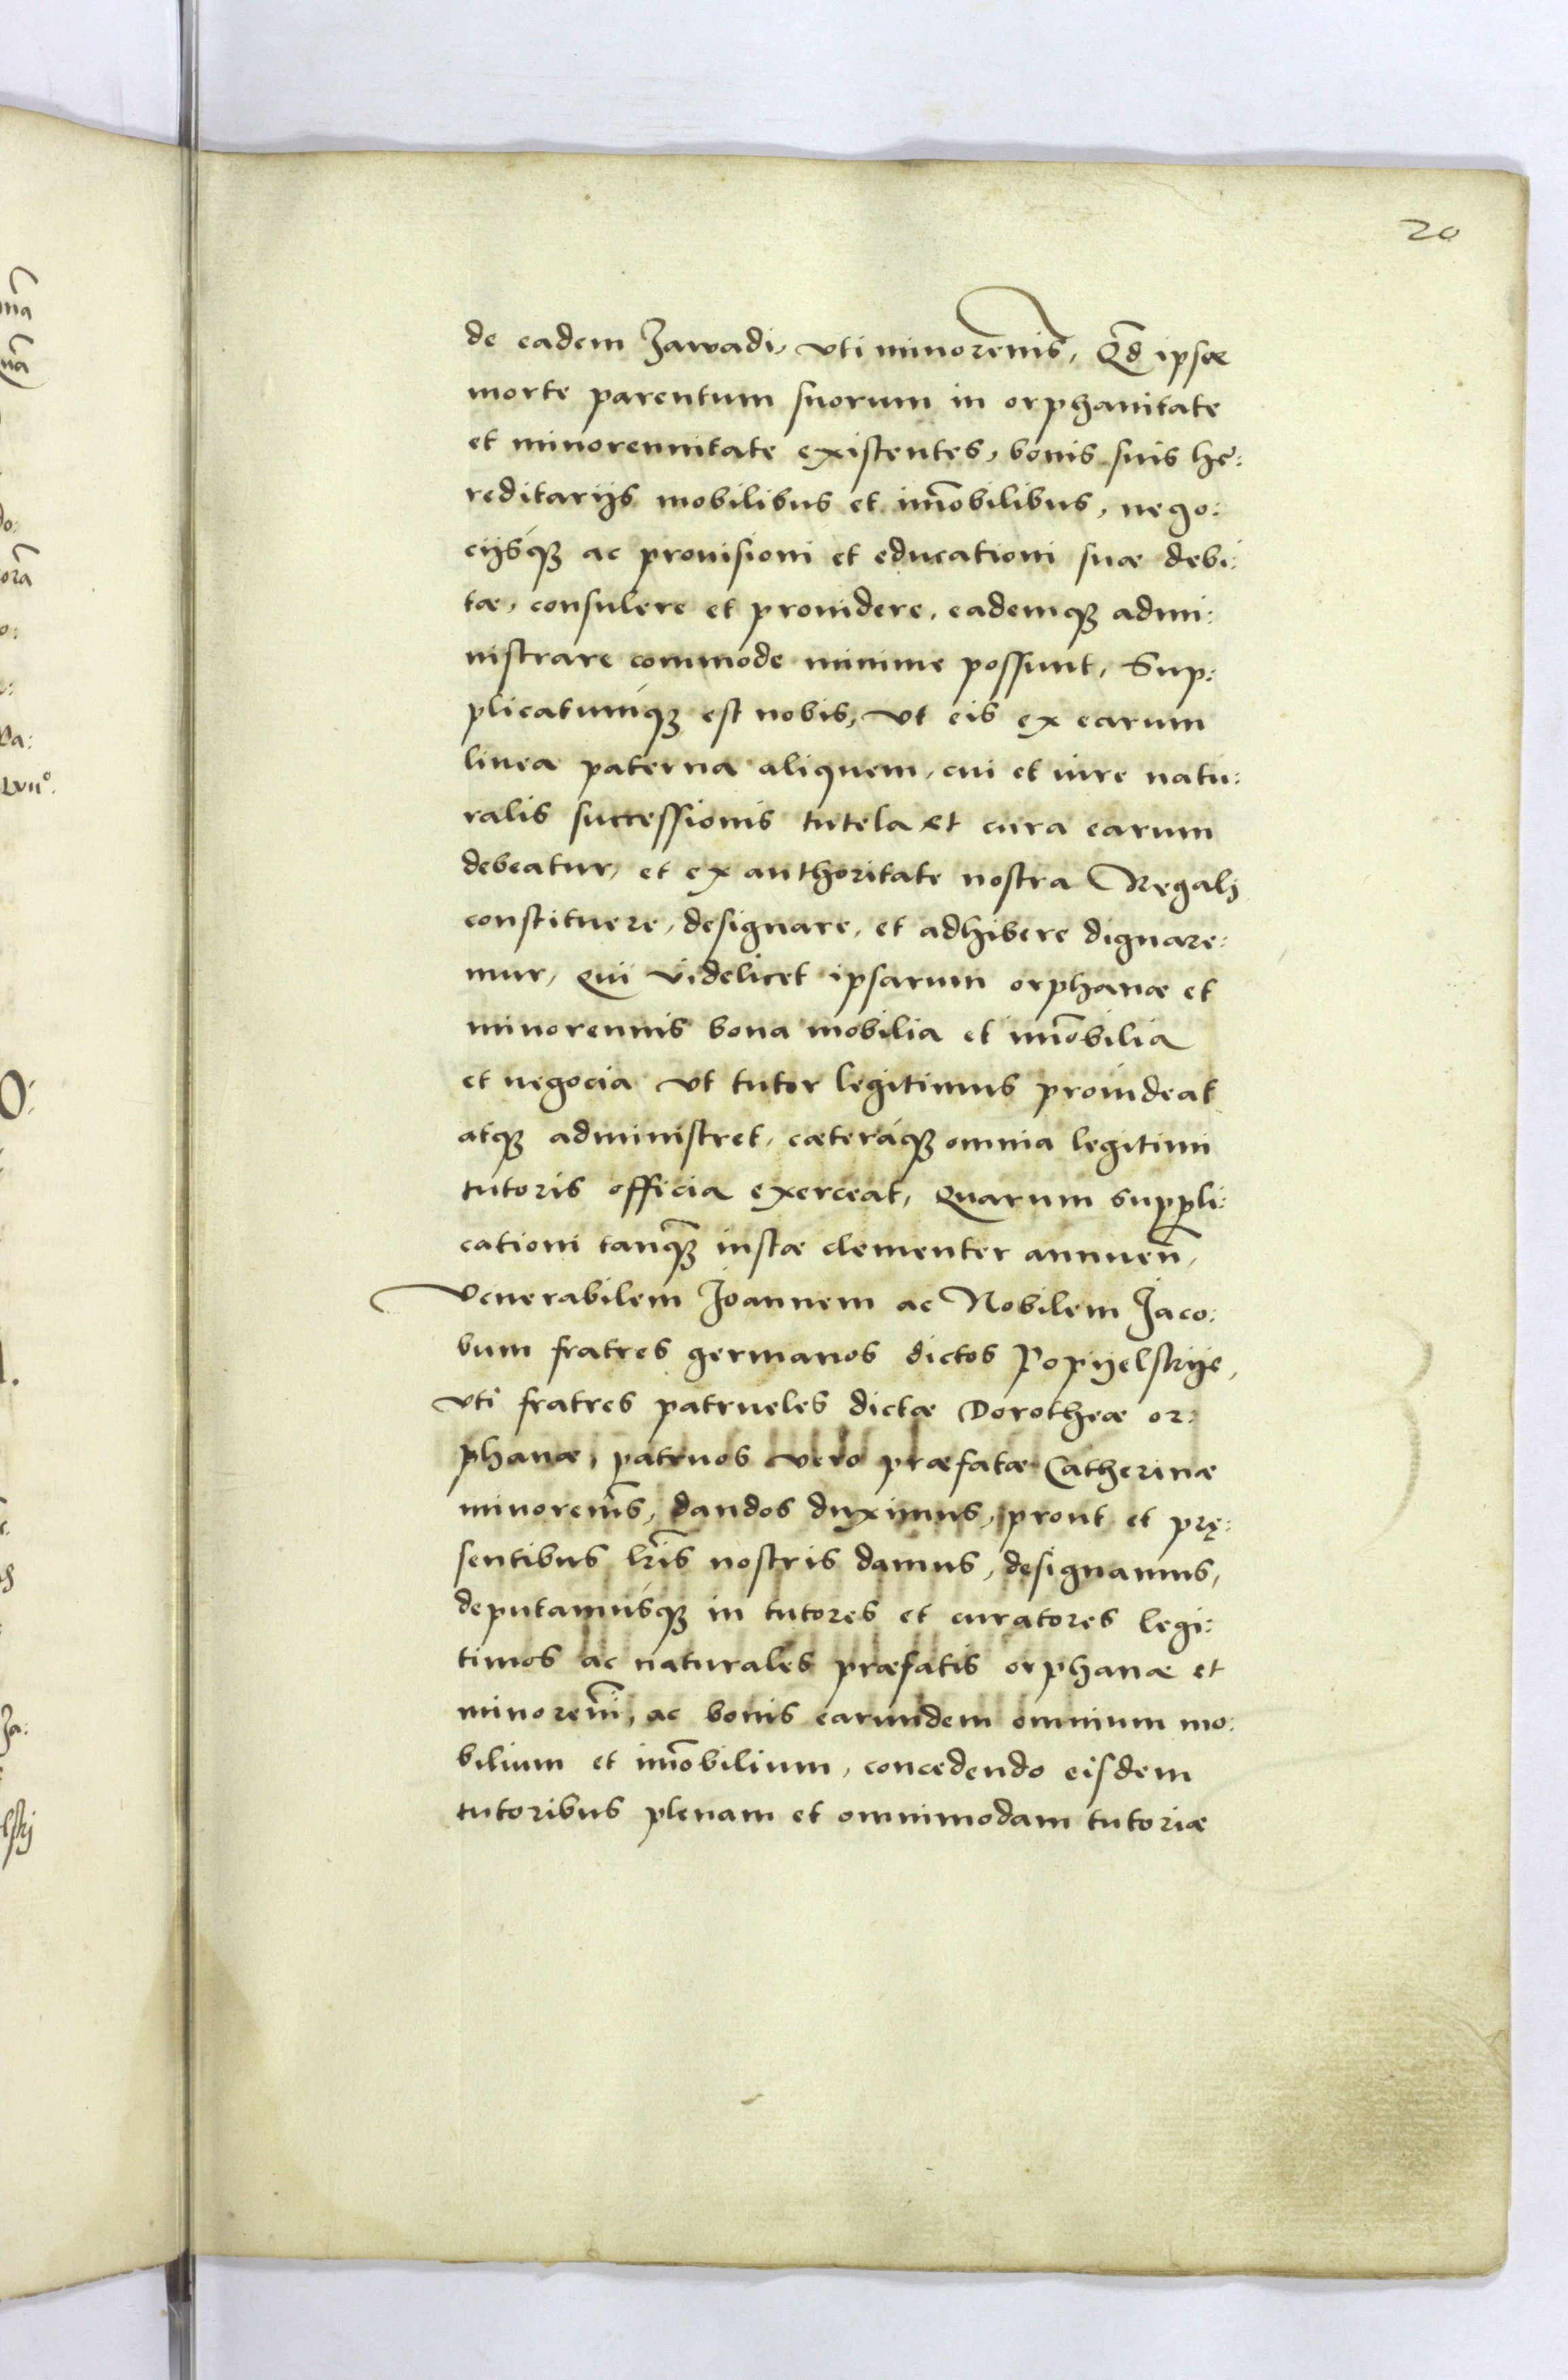 20
de eadem Zawadi, vti minoren̄is, Qd̄ ipsæ
morte parentum suorum in orphanitate
et minorennitate existentes, bonis suis he:
reditarijs mobilibus et im̄obilibus, nego:
cijsq́ꝫ ac prouisioni et educationi suæ debi:
tæ, consulere et prouidere, eademqꝫ admi:
nistrare commode minime possunt, Sup:
plicatumq́ꝫ est nobis, vt eis ex earum
linea paterna aliquem, cui et iure natu:
ralis successionis tutela et cura earum
debeatur, et ex authoritate nostra Regali
constituere, designare, et adhibere dignare:
mur, qui videlicet ipsarum orphanæ et
minorennis bona mobilia et im̄obilia
et negocia vt tutor legitimus prouideat
atqꝫ administret, cæteráqꝫ omnia legitimi
tutoris officia exerceat, Quarum suppli:
cationi tanqꝫ̄ iustæ clementer annuen̄,
Venerabilem Joannem ac Nobilem Jaco:
bum fratres germanos dictos Popijelskije,
vti fratres patrueles dictæ Dorotheæ or:
phanæ, patruos vero præfatæ Catherinæ
minoren̄is, dandos duximus, prout et prę:
sentibus lr̄is nostris damus, designamus,
deputamúsqꝫ in tutores et curatores legi:
timos ac naturales præfatis orphanæ et
minoren̄i, ac bonis earundem omnium mo:
bilium et im̄obilium, concedendo eisdem
tutoribus plenam et omnimodam tutoriæ